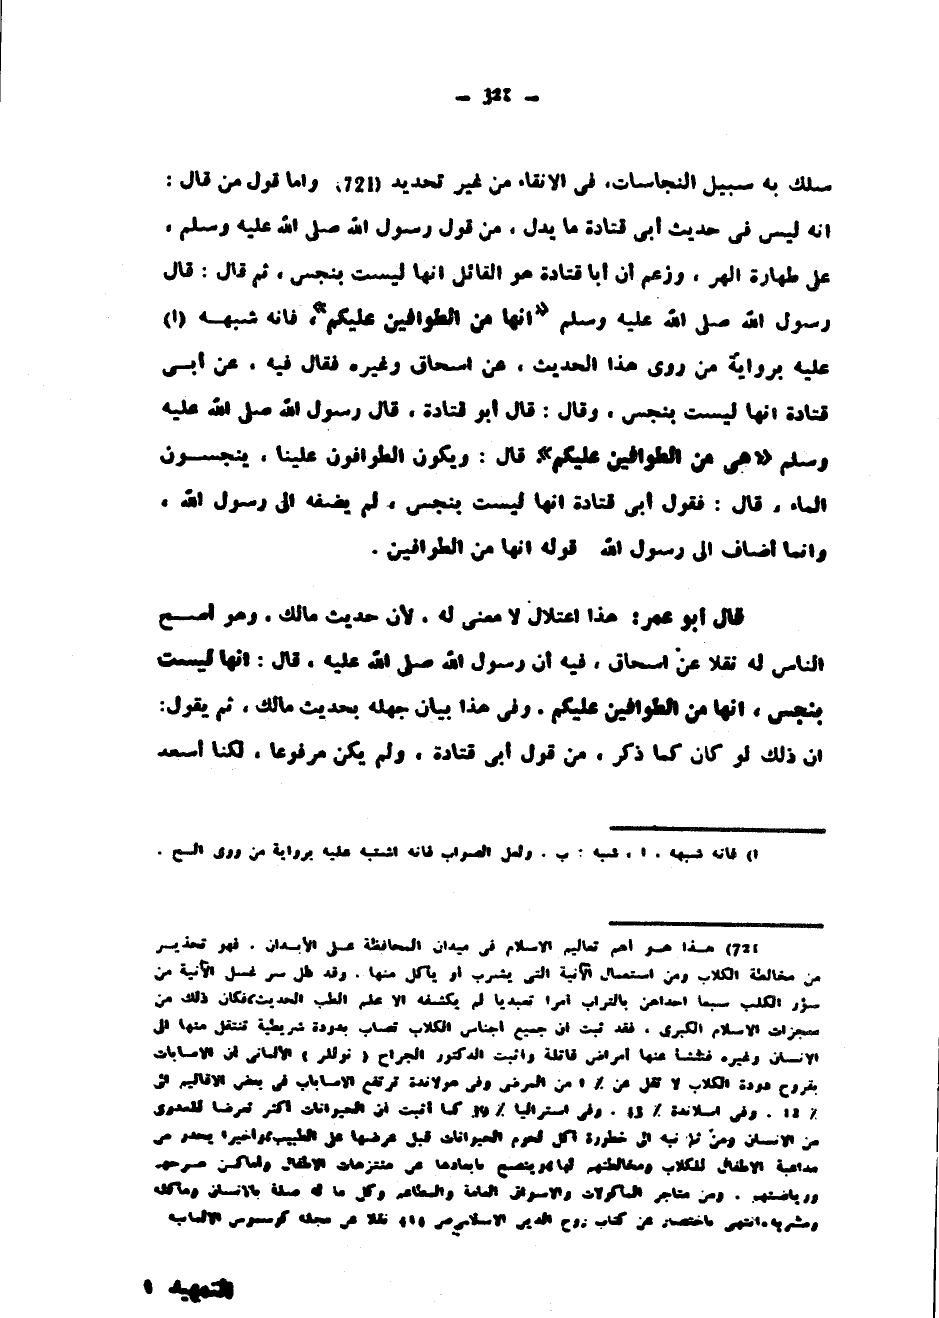 — 321 —
سلك به سبيل النجاسات، فى الانقاء من غير تحديد (721) واما قول من قال :
انه ليس فى حديث أبى قتادة ما يدل ، من قول رسول الله صلى الله عليه وسلم ،
على طهارة الهر ، وزعم أن أبا قتادة هو القائل انها ليست بنجس ، ثم قال : قال
رسول الله صلى الله عليه وسلم «انها من الطوافين عليكم»، فانه شبهه (ا)
عليه برواية من روى هذا الحديث ، عن اسحاق وغيره فقال فيه ، عن أبى
قتادة انها ليست بنجس ، وقال : قال أبو قتادة ، قال رسول الله صلى الله عليه
وسلم «هى من الطوافين عليكم» قال : ويكون الطوافون علينا ، ينجسون
الماء ، قال : فقول أبى قتادة انها ليست بنجس ، لم يضفه الى رسول الله ،
وانما أضاف الى رسول الله قوله انها من الطوافين .
قال أبو عمر: هذا اعتلال لا معنى له ، لأن حديث مالك ، وهو أصح
الناس له نقلا عن اسحاق ، فيه أن رسول الله صلى الله عليه ، قال : انها ليست
بنجس ، انها من الطوافين عليكم . وفى هذا بيان جهله بحديث مالك ، ثم يقول:
ان ذلك لو كان كما ذكر ، من قول أبى قتادة ، ولم يكن مرفوعا ، لكنا أسعد
ا) فانه شبهه ، ا ، شبه : ب . ولعل الصواب فانه اشتبه عليه برواية من روى الخ .
721) هذا هو أهم تعاليم الاسلام فى ميدان المحافظة على الأبدان . فهو تحذير
من مخالطة الكلاب ومن استعمال الآنية التى يشرب أو يأكل منها . وقد ظل سر غسل الآنية من
سؤر الكلب سبعا احداهن بالتراب أمرا تعبديا لم يكشفه الا علم الطب الحديث، فكان ذلك من
معجزات الاسلام الكبرى . فقد ثبت ان جميع أجناس الكلاب تصاب بدودة شريطية تنتقل منها الى
الانسان وغيره فتنشأ عنها أمراض قاتلة وأثبت الدكتور الجراح ( نوللر ) الألمانى أن الاصابات
بقروح دودة الكلاب لا تقل عن ٪ 1 من المرضى وفى هولاندة ترتفع الاصابات فى بعض الاقاليم الى
٪ 12 . وفى اسلاندة ٪ 43 . وفى استراليا ٪ 39 كما أثبت أن الحيوانات أكثر تعرضا للعدوى
من الانسان ومن ثم نبه الى خطورة أكل لحوم الحيوانات قبل عرضها على الطبيب، وأخيرا يحذر من
مداعبة الاطفال للكلاب ومخالطتهم لها، وينصح بابعادها عن متنزهات الاطفال وأماكن مرحهم
ورياضتهم . ومن متاجر المأكولات والاسواق العامة والمطاعم وكل ما له صلة بالانسان ومأكله
ومشربه، انتهى باختصار عن كتاب روح الدين الاسلامى ص نقلا عن مجلة كوسموس الالمانية
التمهيد